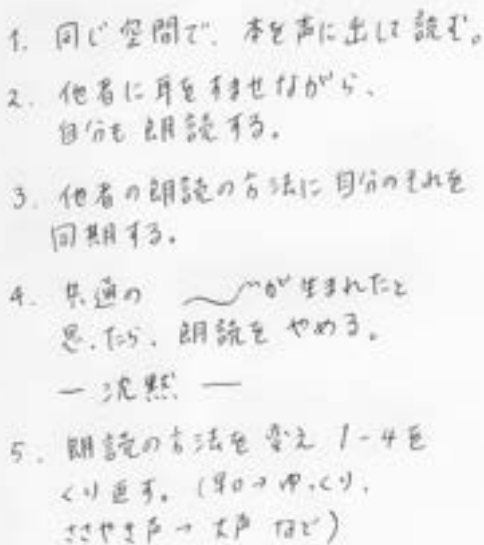 1. 同じ空間で、本を声に出して読む。
2. 他者に耳をすませながら、
自分も朗読する。
3. 他者の朗読の方法に自分のそれを
同期する。
4. 共通の 〜が生まれたと
思ったら、朗読をやめる。
— 沈黙 —
5. 朗読の方法を変え 1-4を
くり返す。(早口→ゆっくり、
ささやき声→大声 など)